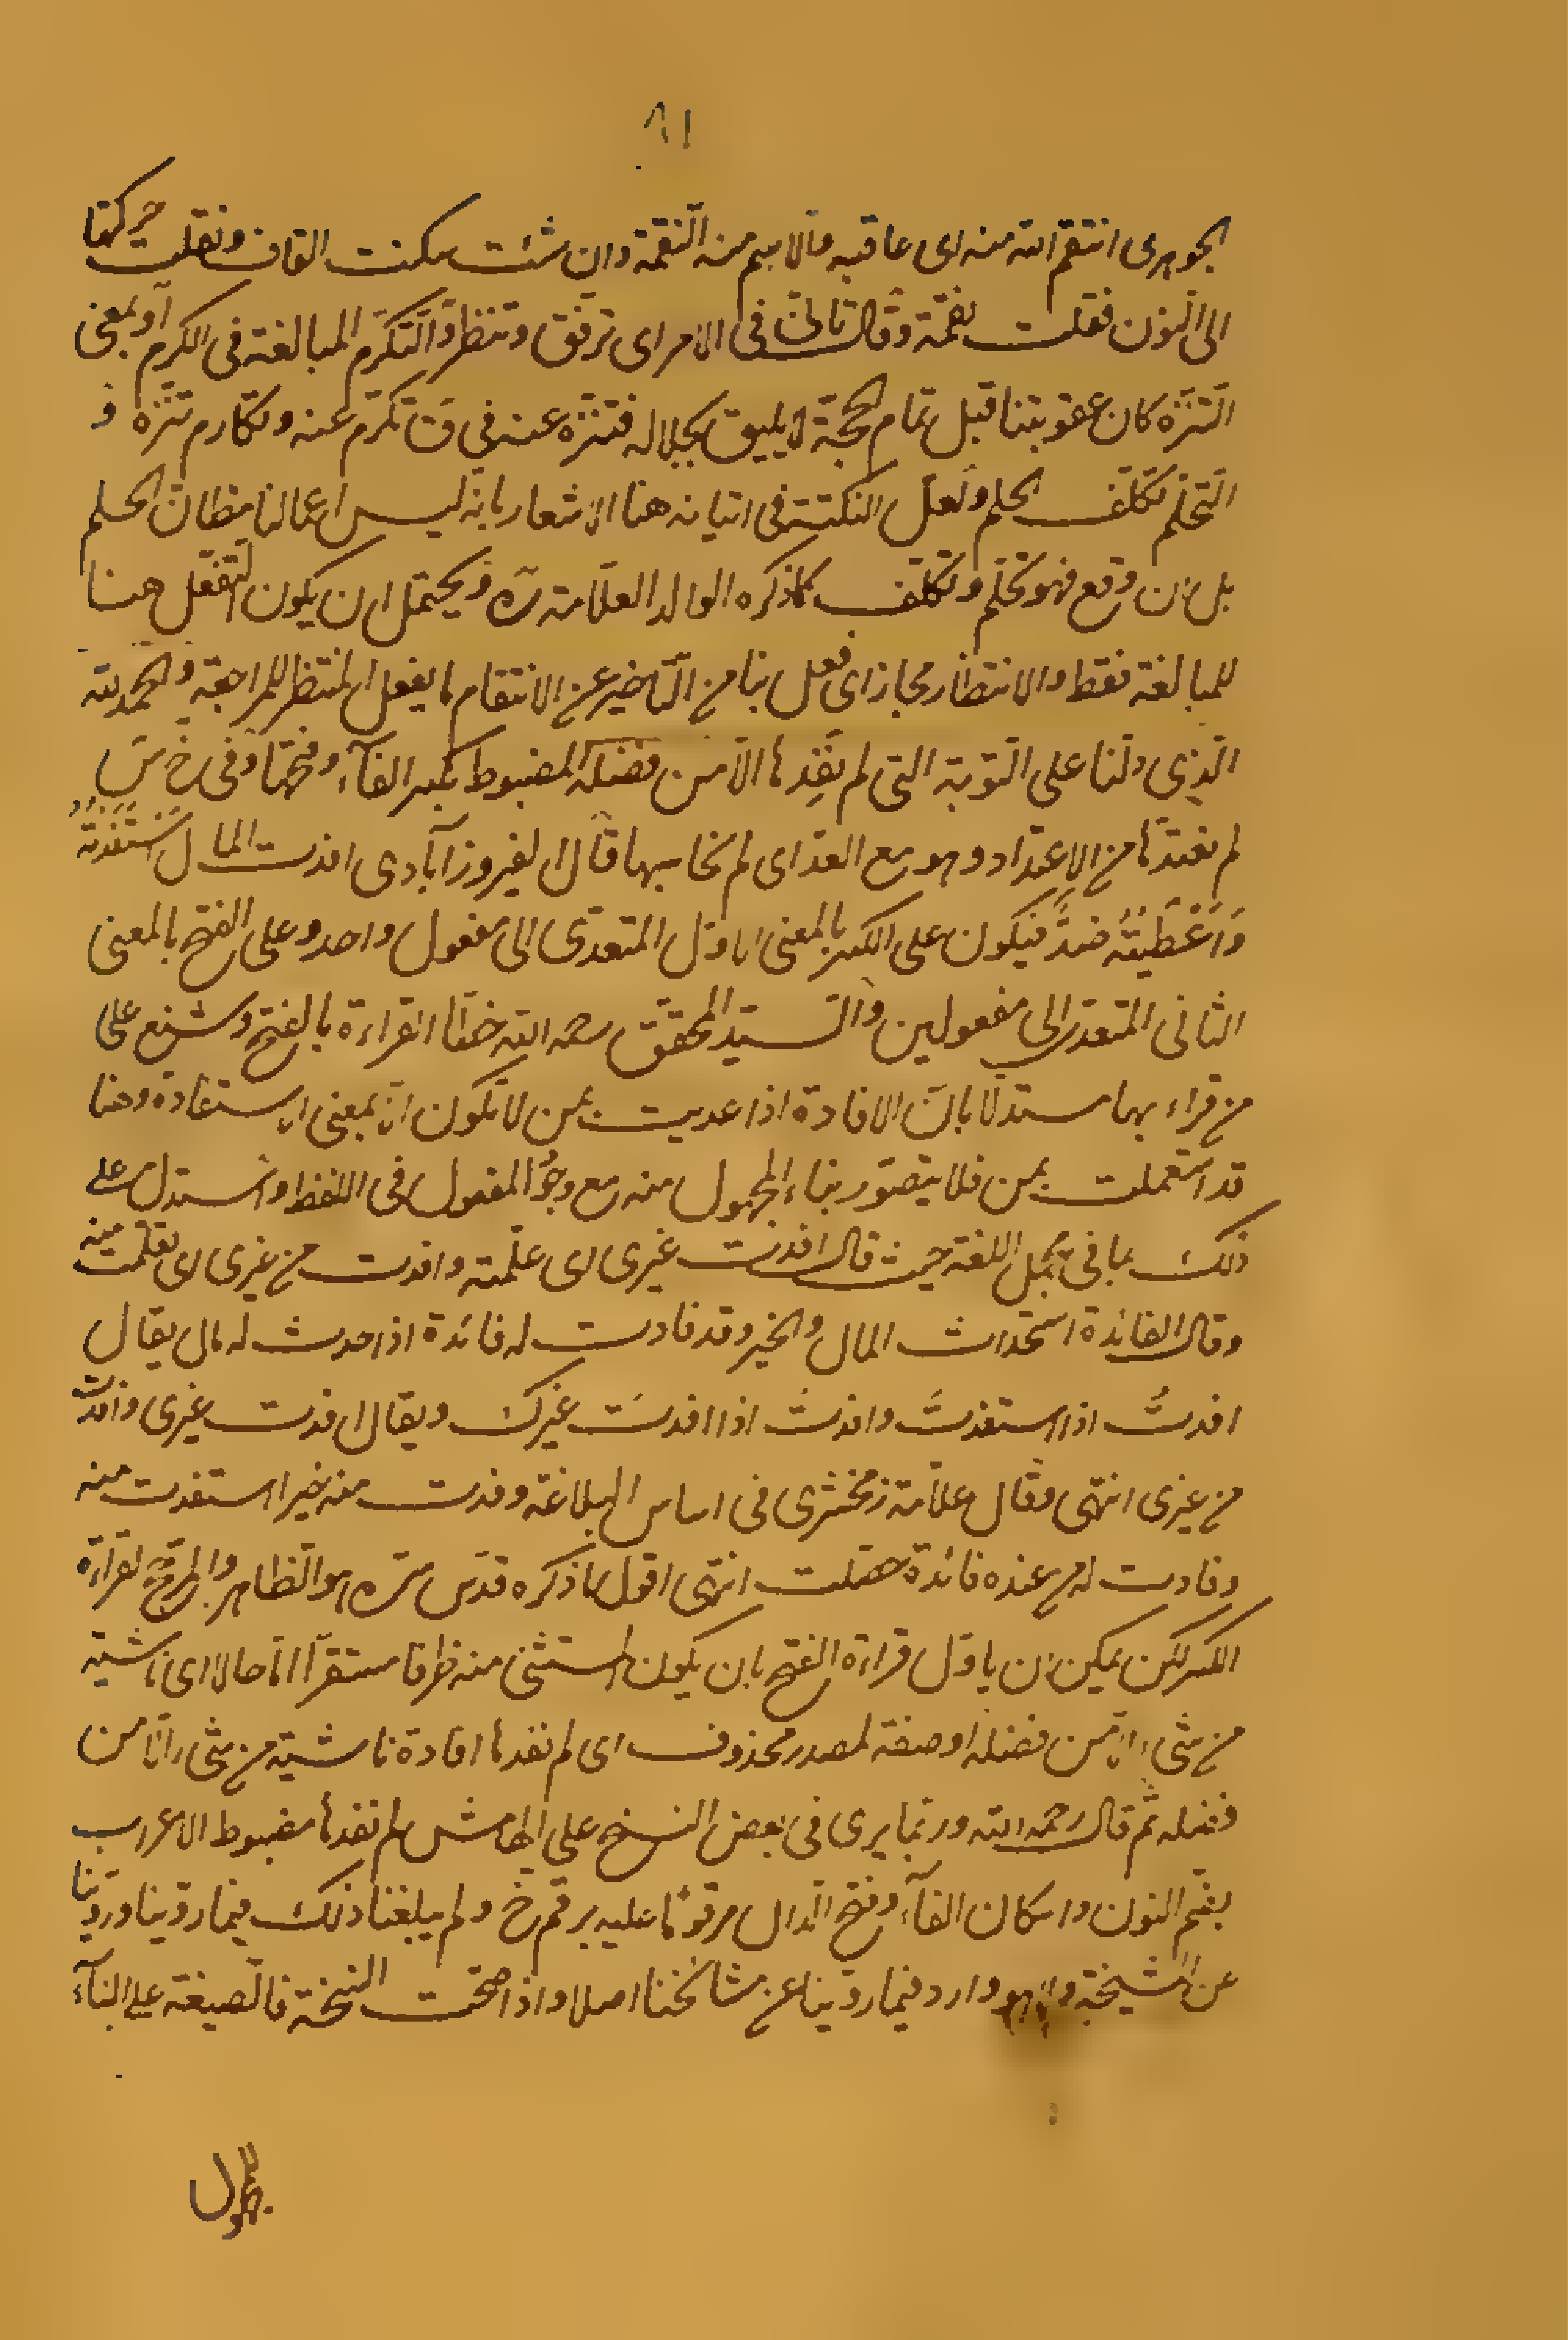 ٨١
الجوهری انتقم الله منه ای عاقبه والاسم منه النّقمة وان شئت سکنت القاف ونقلت حرکتها
الی النّون فقلت نقمة وقال تانّی فی الامر ای ترفّق وتنظر والتّکرّم المبالغة فی الکرم او بمعنی
التّنزّه کان عقوبتنا قبل تمام الحجّة لا یلیق بجلاله فتنزّه عنه فی ق تکرّم عنه وتکارم تنزّه و
التّحلّم تکلّف الحلم ولعلّ النکتة فی اتیانه هنا الاشعار بانّه لیس اعمالنا مظانّ الحلم
بل ان وقع فهو تحلّم وتکلّف کما ذکره الوالد العلّامة ره ویحتمل ان یکون التّفعّل هنا
للمبالغة فقط والانتظار مجاز ای فعل بنا من التّاخیر عن الانتقام ما یفعل المنتظر للمراجعة والحمد لله
الّذی دلّنا علی التّوبة التی لم نفدها الّا من فضله المضبوط بکسر الفآء وفتحها وفی خ س
لم نعتدّها من الاعتداد وهو مع العدّ ای لم نحاسبها قال الفیروزآبادی افدت المال استفدته
واعطیته ضدّ فیکون علی الکسر بالمعنی الاوّل المتعدّی الی مفعول واحد وعلی الفتح بالمعنی
الثانی المتعدّی الی مفعولین والسیّد المحقّق رحمه الله خطّا القراءة بالفتح وشنع علی
من قراء بها مستدلّا بانّ الافادة اذا عدیت بمن لا تکون الّا بمعنی الاستفادة وهنا
قد استعملت بمن فلا یتصوّر بناء المجهول منه مع وجود المفعول فی اللفظ واستدل علی
ذلک بما فی مجمل اللغة حیث قال افدت غیری ای علّمته وافدت من غیری ای تعلّمت منه
وقال الفائدة استحداث المال والخیر وقد فادت له فائدة اذا حدث له مال یقال
افدتُ اذا استفدتَ وافدتُ اذا افدتَ غیرک ویقال افدت غیری وافدت
من غیری انتهی وقال علّامة زمخشری فی اساس البلاغة وفدت منه خیرا استفدت منه
وفادت له من عنده فائدة حصلت انتهی اقول ما ذکره قدّس سرّه هو الظاهر والمرجّح لقراءة
الکسر لکن یمکن ان یاوّل قراءة الفتح بان یکون المستثنی منه ظرفا مستقرّا امّا حالا ای ناشیة
من شیء الّا من فضله او صفة لمصدر محذوف ای لم نفدها افادة ناشیة من شیء الّا من
فضله ثمّ قال رحمه الله وربّما یری فی بعض النسخ علی الهامش لم نفدها مضبوط الاعراب
بضم النون واسکان الفآء وفتح الدال مرقوما علیه برقم خ ولم یبلغنا ذلک فیما روّینا وروینا
عن المشیخة وارد فیما روّینا عن مشائخنا اصلا واذا صحّت النسخة فالصیغة علی البنآء
للمجهول